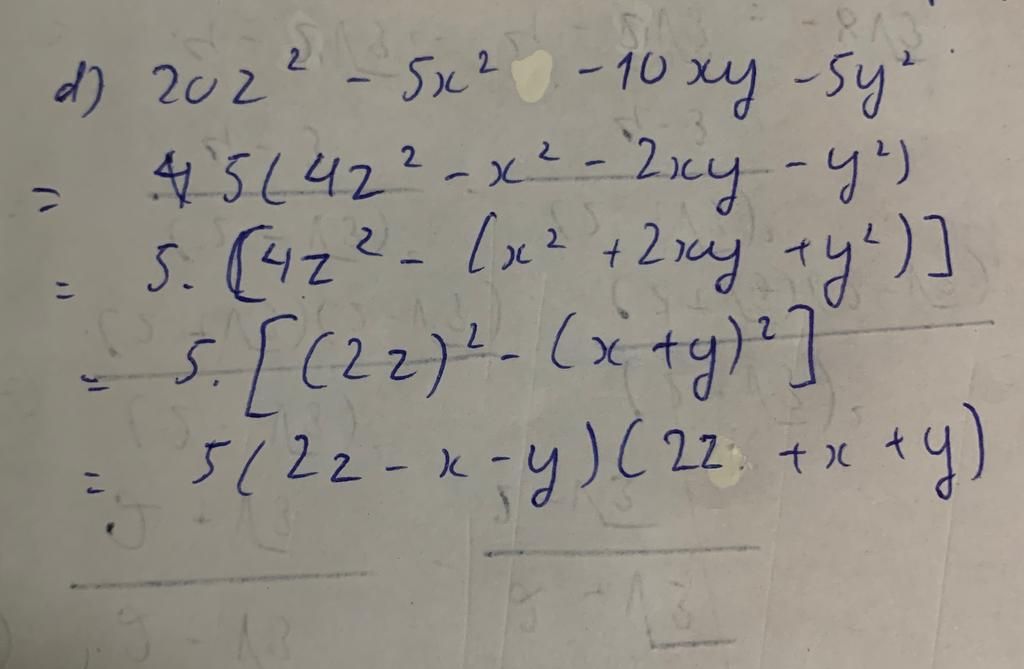 d) 20z² - 5x² - 10xy - 5y²
= 5(4z² - x² - 2xy - y²)
= 5. [4z² - (x² + 2xy + y²)]
= 5. [(2z)² - (x + y)²]
= 5(2z - x - y)(2z + x + y)